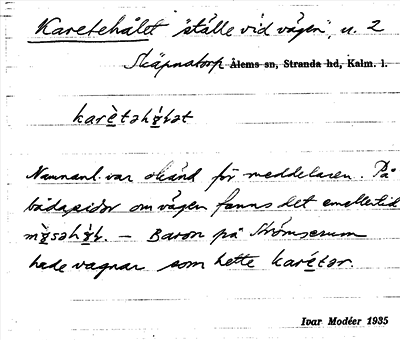 Karetehålet "ställe vid vägen", u. 2
Skäpnatorp Ålems sn, Stranda hd, Kalm. l.
Namnanl. var okänd för meddelaren. På
båda sidor om vägen fanns det emellertid
– Baron på Strömserum
hade vagnar som hette karéter.
Ivar Modéer 1935